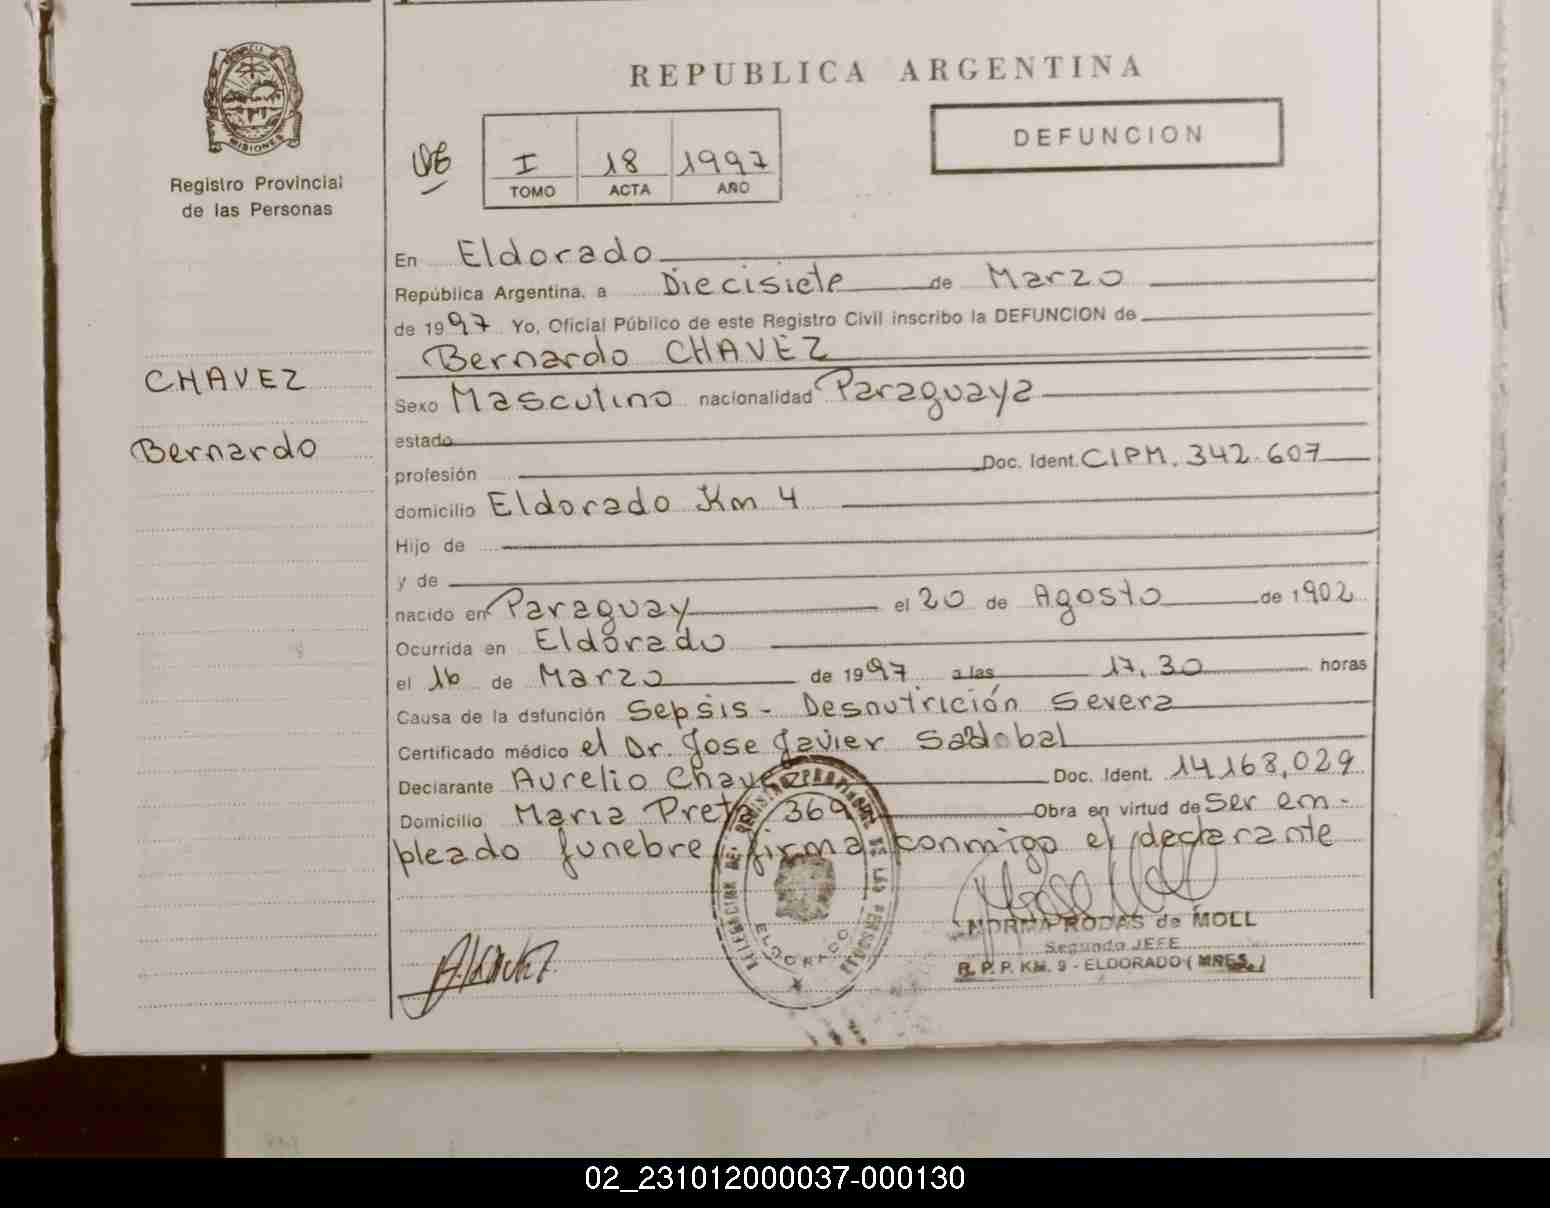 MISIONES
Registro Provincial
de las Personas
CHAVEZ
Bernardo
REPUBLICA ARGENTINA
I 18 1997
TOMO ACTA AÑO
DEFUNCION
En Eldorado
República Argentina, a Diecisiete de Marzo
de 1997 Yo, Oficial Público de este Registro Civil inscribo la DEFUNCION de
Bernardo CHAVEZ
Sexo Masculino nacionalidad Paraguaya
estado
profesión Doc. Ident. CIPM. 342.607
domicilio Eldorado Km 4
Hijo de
y de
nacido en Paraguay el 20 de Agosto de 1902
Ocurrida en Eldorado
el 16 de Marzo de 1997 a las 17,30 horas
Causa de la defunción Sepsis - Desnutrición Severa
Certificado médico el Dr. Jose Javier
Declarante Aurelio Chavez Doc. Ident. 14168,029
Domicilio Maria Preta 369 Obra en virtud de Ser em-
pleado funebre firma conmigo el declarante
ELDORADO
NORMA RODAS de MOLL
Segundo JEFE
R. P. P. KM. 9 - ELDORADO (MNES.)
02_231012000037-000130